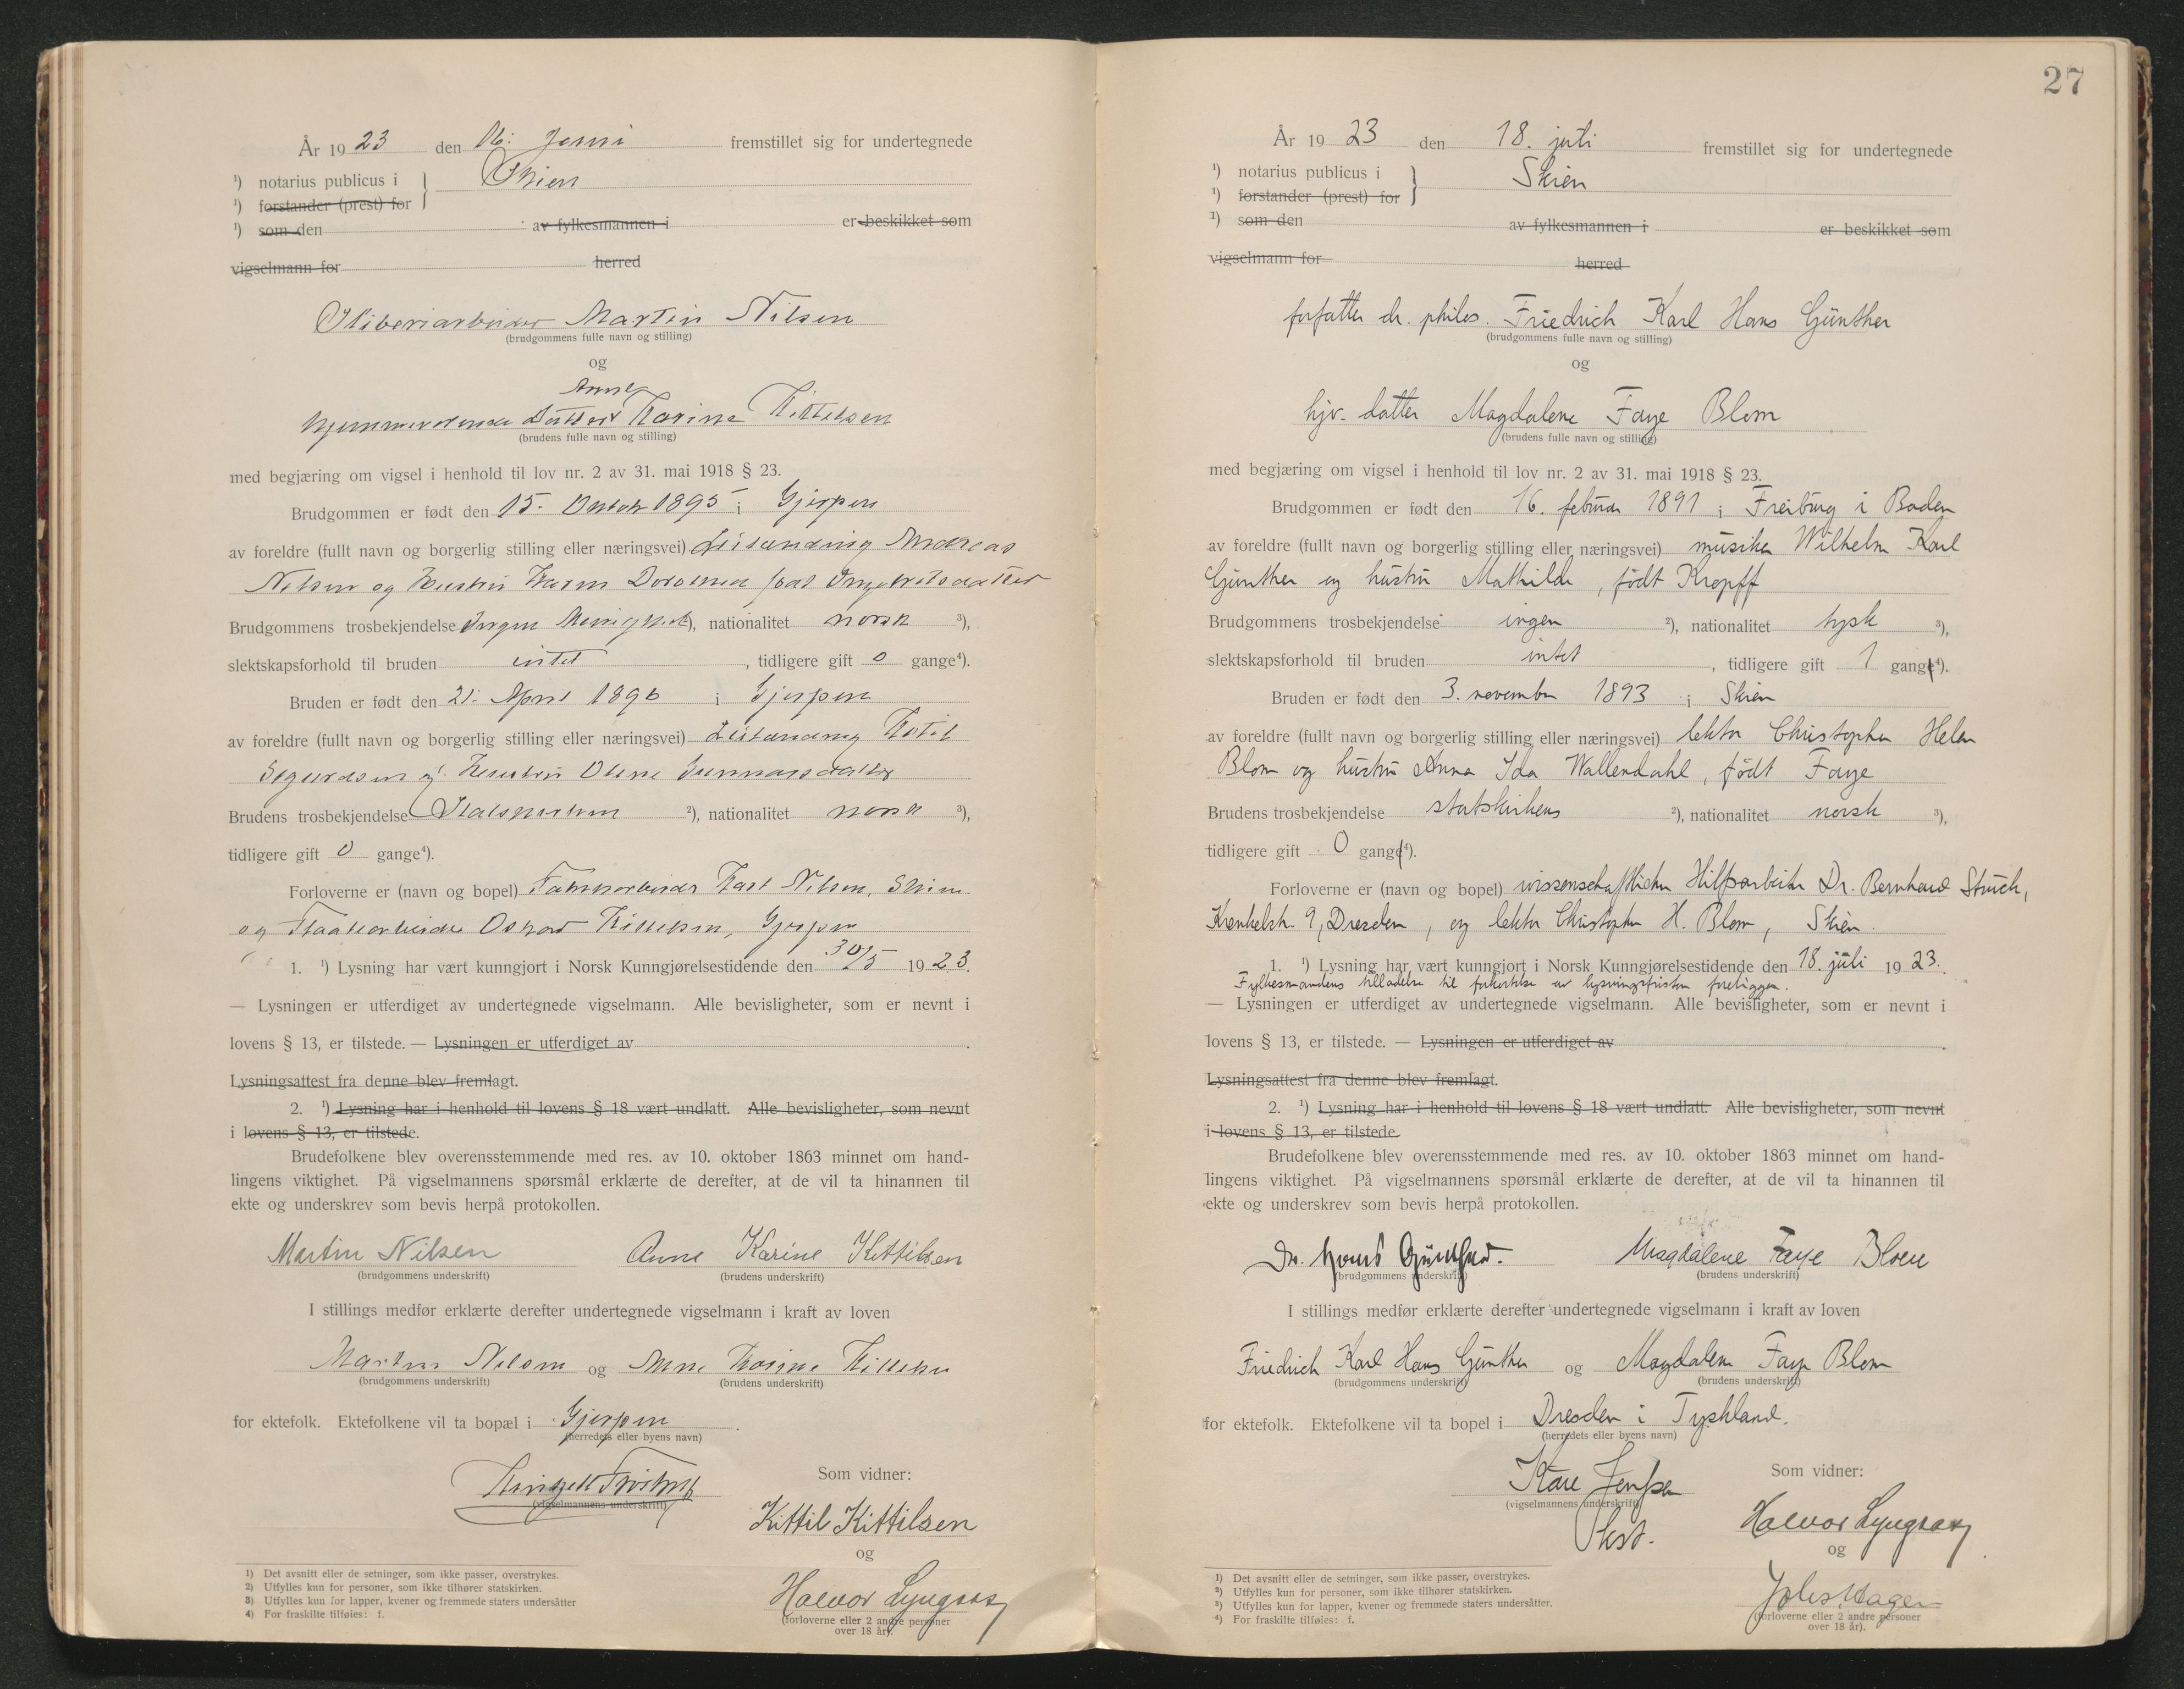 År 19 23 den 16. Juni fremstillet sig for undertegnede
¹) notarius publicus i } Skien
¹) forstander (prest) for
¹) som den av fylkesmannen i er beskikket som
vigselmann for herred
Sliberiarbeider Martin Nilsen
(brudgommens fulle navn og stilling)
og
Anne
hjemmeværende Datter Karine Kittilsen
(brudens fulle navn og stilling)
med begjæring om vigsel i henhold til lov nr. 2 av 31. mai 1918 § 23.
Brudgommen er født den 15. Oktobr 1895 i Gjerpen
av foreldre (fullt navn og borgerlig stilling eller næringsvei) Leilænding Andreas
Nilsen og Hustru Karen Dorothea født Ingebretsdatter
Brudgommens trosbekjendelse ²), nationalitet norsk ³),
slektskapsforhold til bruden intet, tidligere gift 0 gange⁴).
Bruden er født den 21. April 1896 i Gjerpen
av foreldre (fullt navn og borgerlig stilling eller næringsvei) Leilænding Kittil
Sigurdsen og Hustru Olene Gunnarsdatter
Brudens trosbekjendelse Statskirken ²), nationalitet norsk ³),
tidligere gift 0 gange⁴).
Forloverne er (navn og bopel) Karl Nilsen, Skien
og Oskar Kittilsen, Gjerpen
1. ¹) Lysning har vært kunngjort i Norsk Kunngjørelsestidende den 30/5 19 23.
— Lysningen er utferdiget av undertegnede vigselmann. Alle bevisligheter, som er nevnt i
lovens § 13, er tilstede. — Lysningen er utferdiget av .
Lysningsattest fra denne blev fremlagt.
2. ¹) Lysning har i henhold til lovens § 18 vært undlatt. Alle bevisligheter, som nevnt
i lovens § 13, er tilstede.
Brudefolkene blev overensstemmende med res. av 10. oktober 1863 minnet om hand-
lingens viktighet. På vigselmannens spørsmål erklærte de derefter, at de vil ta hinannen til
ekte og underskrev som bevis herpå protokollen.
Martin Nilsen Anne Karine Kittilsen
(brudgommens underskrift) (brudens underskrift)
I stillings medfør erklærte derefter undertegnede vigselmann i kraft av loven
Martin Nilsen og Anne Karine Kittilsen
(brudgommens underskrift) (brudens underskrift)
for ektefolk. Ektefolkene vil ta bopæl i Gjerpen.
(herredets eller byens navn)
Som vidner:
(vigselmannens underskrift)
Kittil Kittilsen
og
Halvor Lyngaas
(forloverne eller 2 andre personer
over 18 år).
1) Det avsnitt eller de setninger, som ikke passer, overstrykes.
2) Utfylles kun for personer, som ikke tilhører statskirken.
3) Utfylles kun for lapper, kvener og fremmede staters undersåtter
4) For fraskilte tilføies: f.
27
År 19 23 den 18. juli fremstillet sig for undertegnede
¹) notarius publicus i } Skien
¹) forstander (prest) for
¹) som den av fylkesmannen i er beskikket som
vigselmann for herred
forfatter dr. philos. Friedrich Karl Hans Günther
(brudgommens fulle navn og stilling)
og
hjv. datter Magdalene Faye Blom
(brudens fulle navn og stilling)
med begjæring om vigsel i henhold til lov nr. 2 av 31. mai 1918 § 23.
Brudgommen er født den 16. februar 1891 i Freiburg i Baden
av foreldre (fullt navn og borgerlig stilling eller næringsvei) musiker Wilhelm Karl
Günther og hustru Mathilde, født Kropff
Brudgommens trosbekjendelse ingen ²), nationalitet tysk ³),
slektskapsforhold til bruden intet, tidligere gift 1 gange⁴).
Bruden er født den 3. november 1893 i Skien
av foreldre (fullt navn og borgerlig stilling eller næringsvei) lektor Christopher Helen
Blom og hustru Anna Ida Wallendahl, født Faye
Brudens trosbekjendelse statskirkens ²), nationalitet norsk ³),
tidligere gift 0 gange⁴).
Forloverne er (navn og bopel) wissenschaftlicher Hilfsarbeiter Dr. Bernhard Struck,
Krenkelstr. 9, Dresden, og lektor Christopher H. Blom, Skien.
1. ¹) Lysning har vært kunngjort i Norsk Kunngjørelsestidende den 18. juli 19 23.
Fylkesmandens tilladelse til forkortelse av lysningsfristen foreligger.
— Lysningen er utferdiget av undertegnede vigselmann. Alle bevisligheter, som er nevnt i
lovens § 13, er tilstede. — Lysningen er utferdiget av .
Lysningsattest fra denne blev fremlagt.
2. ¹) Lysning har i henhold til lovens § 18 vært undlatt. Alle bevisligheter, som nevnt
i lovens § 13, er tilstede.
Brudefolkene blev overensstemmende med res. av 10. oktober 1863 minnet om hand-
lingens viktighet. På vigselmannens spørsmål erklærte de derefter, at de vil ta hinannen til
ekte og underskrev som bevis herpå protokollen.
Dr. Hans Günther. Magdalene Faye Blom
(brudgommens underskrift) (brudens underskrift)
I stillings medfør erklærte derefter undertegnede vigselmann i kraft av loven
Friedrich Karl Hans Günther og Magdalene Faye Blom
(brudgommens underskrift) (brudens underskrift)
for ektefolk. Ektefolkene vil ta bopel i Dresden i Tyskland.
(herredets eller byens navn)
Kåre Jenssen Som vidner:
(vigselmannens underskrift)
Halvor Lyngaas
og
Johs. Hagen
(forloverne eller 2 andre personer
over 18 år).
¹) Det avsnitt eller de setninger, som ikke passer, overstrykes.
²) Utfylles kun for personer, som ikke tilhører statskirken.
³) Utfylles kun for lapper, kvener og fremmede staters undersåtter.
⁴) For fraskilte tilføies: f.